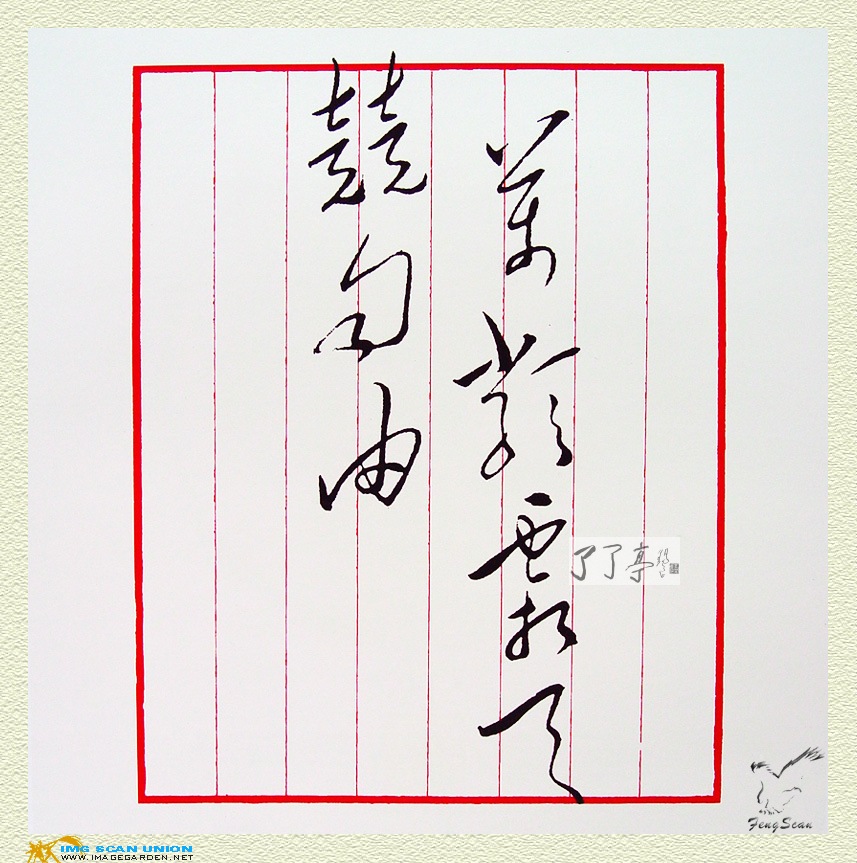 萬類霜天
競自由
了了亭
FengScan
IMG SCAN UNION
WWW.IMAGEGARDEN.NET